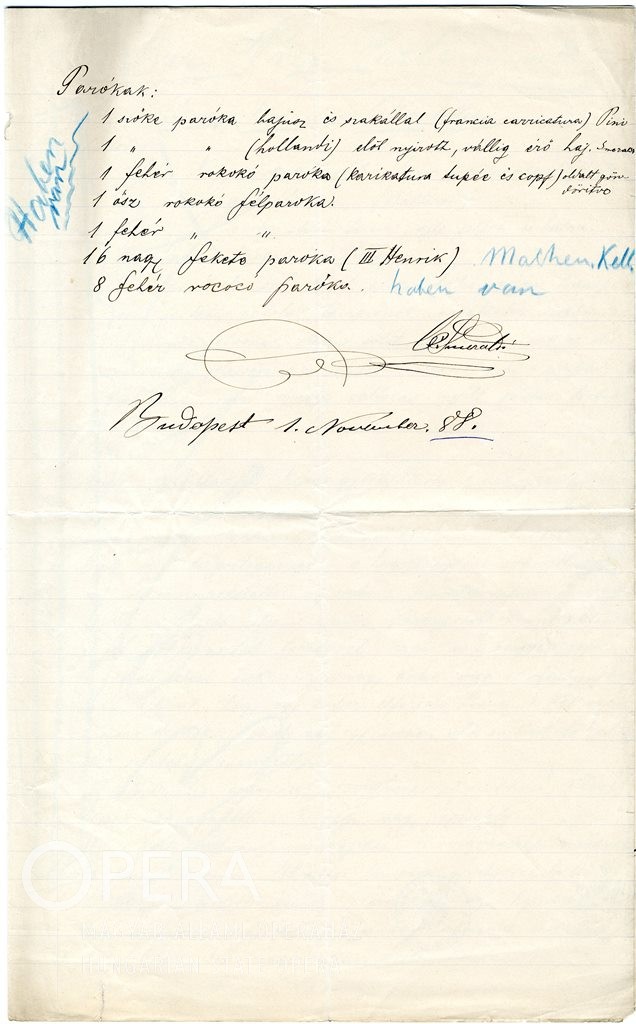 Parókák:
1 szőke paróka bajusz és szakállal (francia carricatura) Pini
1 " " (hollandi) elöl nyirott, vállig érő haj. Smeraldi
1 fehér rokokó paroka (karikatura tupée és copf) oldalt gön
döritve
1 ősz rokokó félparoka.
1 fehér " "
16 nagy fekete paroka (III Henrik) Machen. Kell
8 fehér rococo paróka. haben van
Haben
van
Budapest 1. November. 88.
OPERA